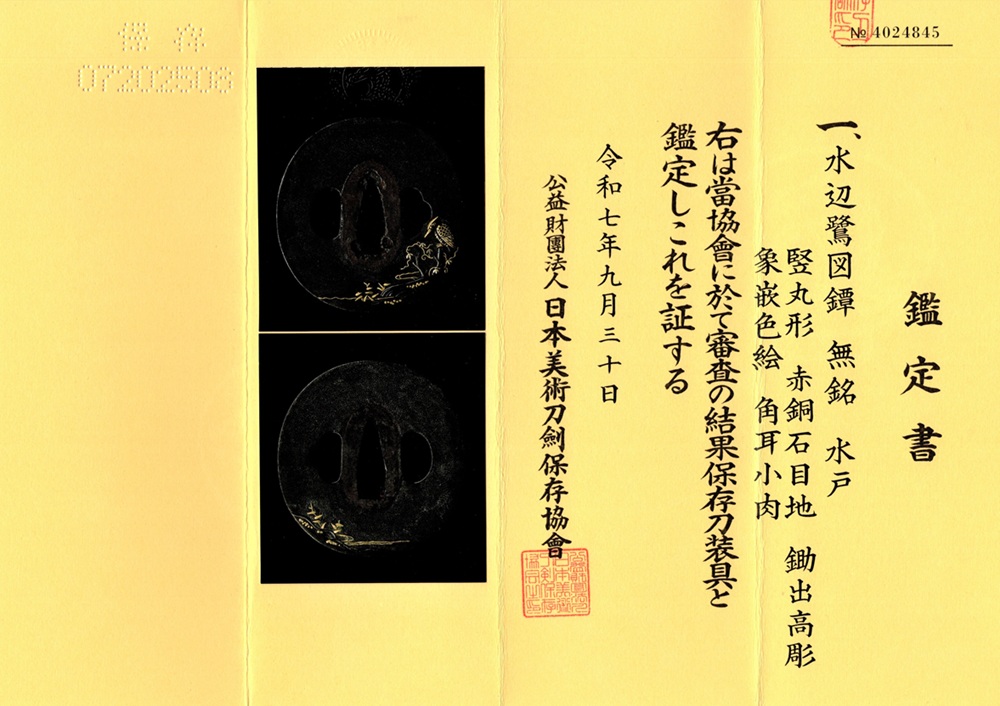 № 4024845
鑑定書
一、水辺鷺図鐔 無銘 水戸
竪丸形 赤銅石目地 鋤出高彫
象嵌色絵 角耳小肉
右は當協會に於て審査の結果保存刀装具と
鑑定しこれを証する
令和七年九月三十日
公益財團法人 日本美術刀劍保存協會
保存
07202508